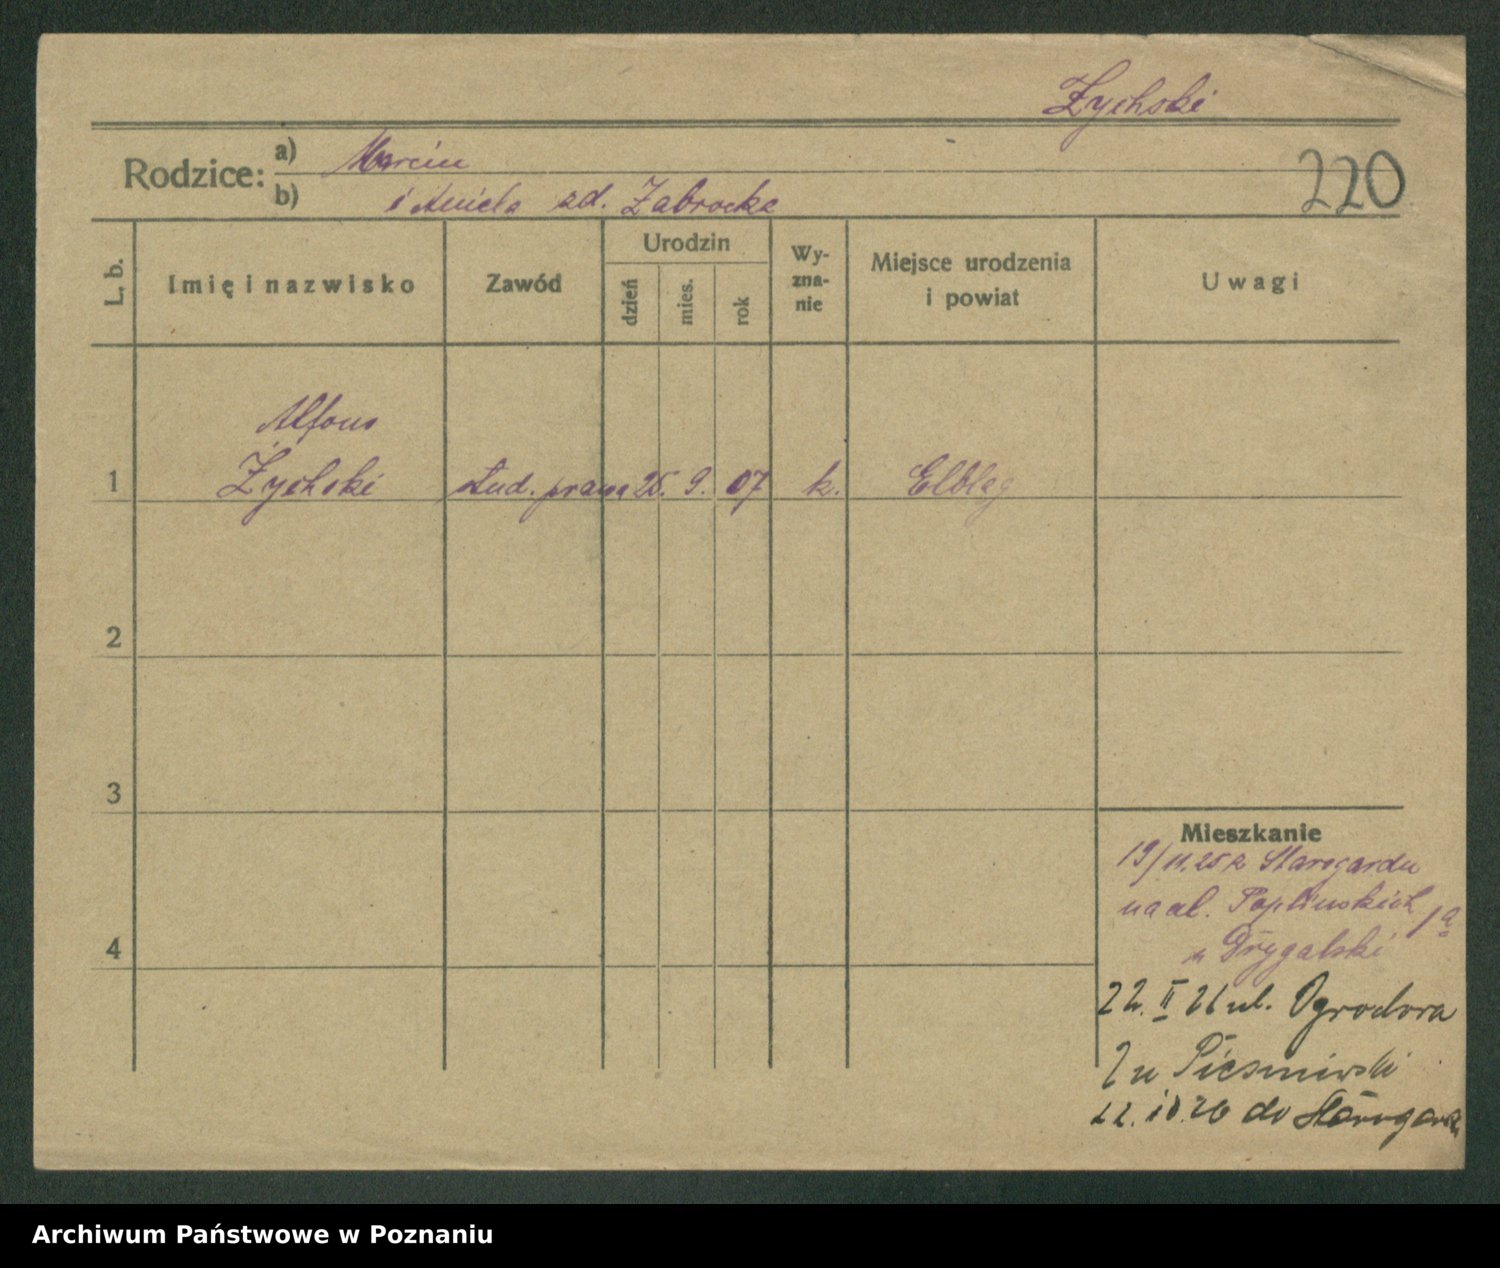 Żychski
Rodzice:
a) Marcin
b) i Aniela zd. Zabrocka
220
L. b.
Imię i nazwisko
Zawód
Urodzin
dzień
mies.
rok
Wy-
zna-
nie
Miejsce urodzenia
i powiat
Uwagi
Alfons
1 Żychski stud. prawa 25. 9. 07 k. Elbląg
2
3
4
Mieszkanie
19/11.25 z Starogardu
na ul. Poplińskich 1a
u Drygalski
22. II 26 ul. Ogrodowa
2 u
22. 10. 26 do
Archiwum Państwowe w Poznaniu